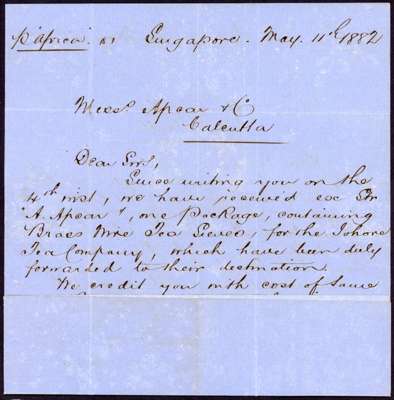 p "Africa". Singapore. May. 11th 1882
Messrs Apcar & Co
Calcutta
Dear Sirs,
Since writing you on the
4th inst, we have received ex Str
"A. Apcar", one Package, containing
Brass Wire Tea Sieves, for the Johore
Tea Company, which have been duly
forwarded to their destination.
We credit you with cost of same